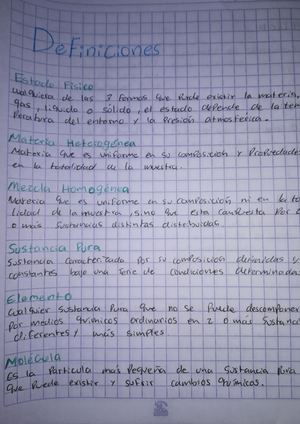 Definiciones
Estado Físico
Cualquiera de las 3 formas que Puede existir la materia,
gas, liquido o sólido, el estado depende de la tem
Peratura del entorno y la Presión atmosferica.
Materia Heterogénea
Materia que es uniforme en su composición y Propiedades
en la totalidad de la muestra.
Mezcla Homogénea
Materia que es uniforme en su composición ni en la to
lidad de la muestra, sino que esta compuesta Por 2
o más sustancias distintas distribuidas
Sustancia Pura
Sustancia caracterizada Por su composición definidas y
constantes bajo una serie de condiciones determinadas
Elemento
Cualquier sustancia Pura que no se Puede descomponer
Por medios químicos ordinarios en 2 o más sustancias
diferentes y más simples.
Molécula
Es la Particula más Pequeña de una sustancia Pura
que Puede existir y sufrir cambios químicos.